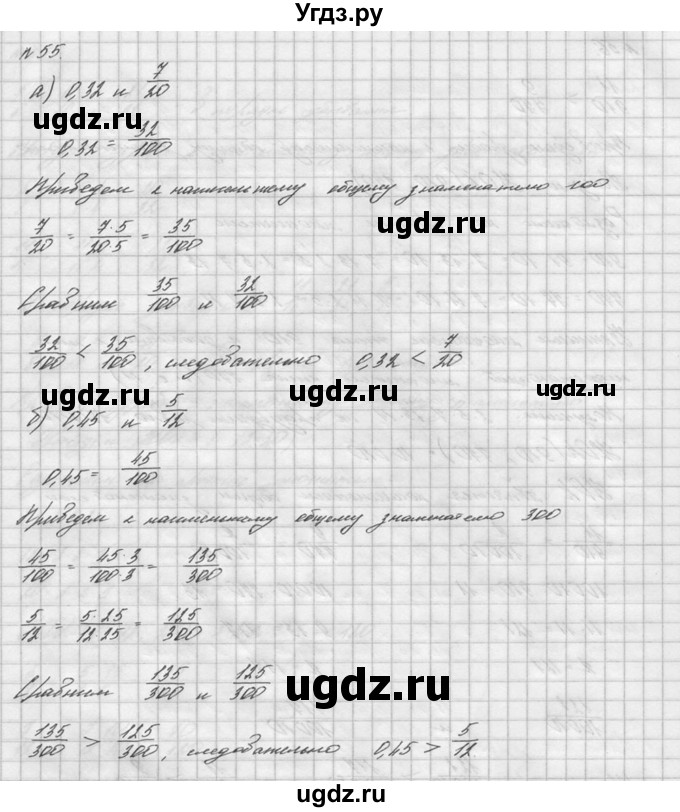 Угдз.ру
n 55.
а) 0,32 и 7/20
ugdz.ru
0,32 = 32/100
Приведем к наименьшему общему знаменателю 100
7/20 = 7·5/20·5 = 35/100
ugdz.ru
Сравним 35/100 и 32/100
32/100 < 35/100, следовательно 0,32 < 7/20
ugdz.ru ugdz.ru ugdz.ru
б) 0,45 и 5/12
0,45 = 45/100
Приведем к наименьшему общему знаменателю 300
45/100 = 45·3/100·3 = 135/300
5/12 = 5·25/12·25 = 125/300
Сравним 135/300 и 125/300
ugdz.ru
135/300 > 125/300, следовательно 0,45 > 5/12